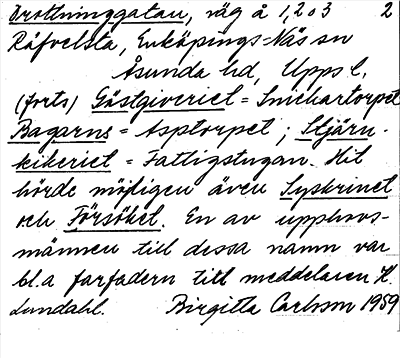 Drottninggatan, väg å 1, 2 o 3 2
Räfvelsta, Enköpings-Näs sn
Åsunda hd, Upps l.
(forts) Gästgiveriet = Snickartorpet
Bagarns = Asptorpet ; Stjärn-
kikeriet = Fattigstugan. Hit
hörde möjligen även Syskrinet
och Försöket. En av upphovs-
männen till dessa namn var
bl.a farfadern till meddelaren H.
Lundahl. Birgitta Carlsson 1959